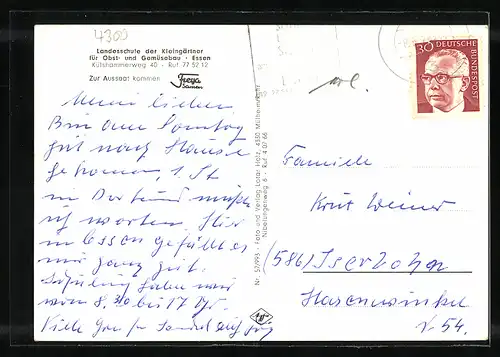 4300
Landesschule der Kleingärtner
für Obst- und Gemüsebau · Essen
Külshammerweg 40 · Ruf 77 52 12
Zur Aussaat kommen
Frega
Samen
30 DEUTSCHE
BUNDESPOST
Meine Lieben
Bin am Sonntag
gut nach Hause
gekommen, 1 St.
in Dortmund mußte
ich warten. Hier
in Essen gefällt es
mir ganz gut.
Schulung haben wir
von 8.30 bis 17 Uhr
Viele
Nr. 57/993 · Foto und Verlag Lothar Holz, 4330 Mülheim-Ruhr
Nibelungenweg 6 · Ruf 4 07 66
Familie
Kurt Weiner
(586) Iserlohn
Hasenwinkel
54.